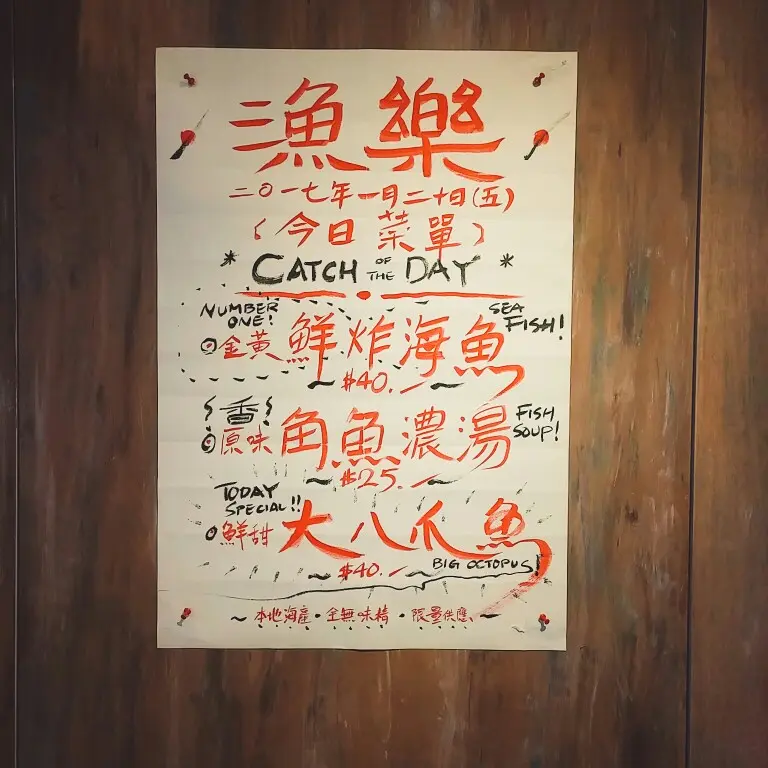 漁樂
二〇一七年一月二十日(五)
(今日菜單)
* CATCH OF THE DAY *
NUMBER ONE!
SEA FISH!
金黃 鮮炸海魚
$40.
香
FISH SOUP!
原味 角魚濃湯
$25.
TODAY SPECIAL!!
鮮甜 大八爪魚
BIG OCTOPUS!
$40.
~ 本地海產・全無味精・限量供應 ~